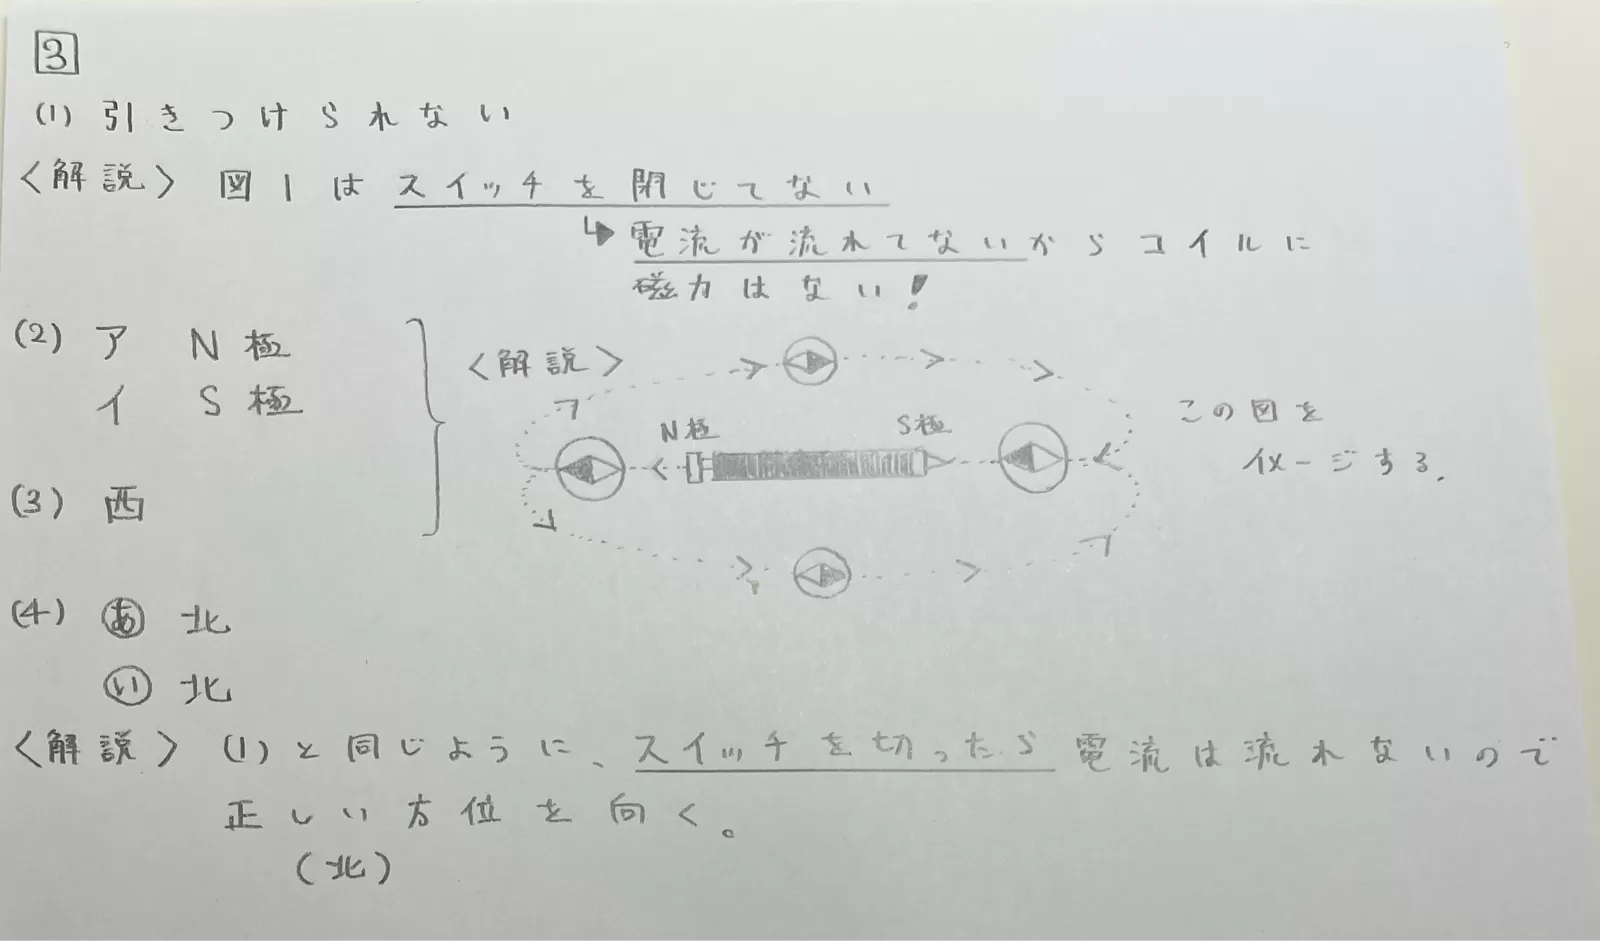 3
(1) 引きつけられない
〈解説〉 図1はスイッチを閉じてない
↳ 電流が流れてないからコイルに
磁力はない!
(2) ア N極
イ S極
〈解説〉
N極 S極
この図を
イメージする.
(3) 西
(4) あ 北
い 北
〈解説〉 (1)と同じように、スイッチを切ったら電流は流れないので
正しい方位を向く。
(北)